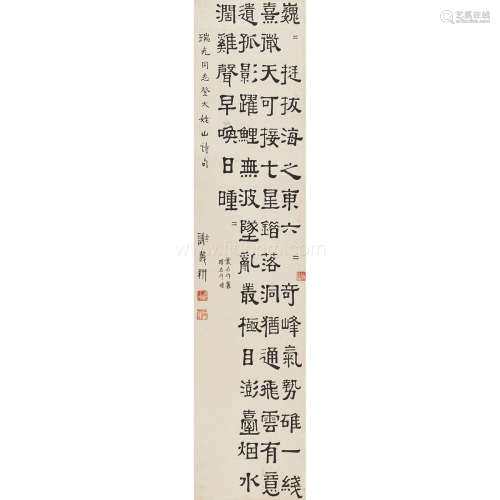 巍〻挺拔海之東六〻奇峰氣勢雄一綫
熹微天可接七星錯落洞猶通飛雲有意
遺孤影躍鯉無波墜亂叢極目澎臺烟水
濶雞聲早喚日曈〻
瑞光同志登大姥山詩句
謝義耕
艺狐在线